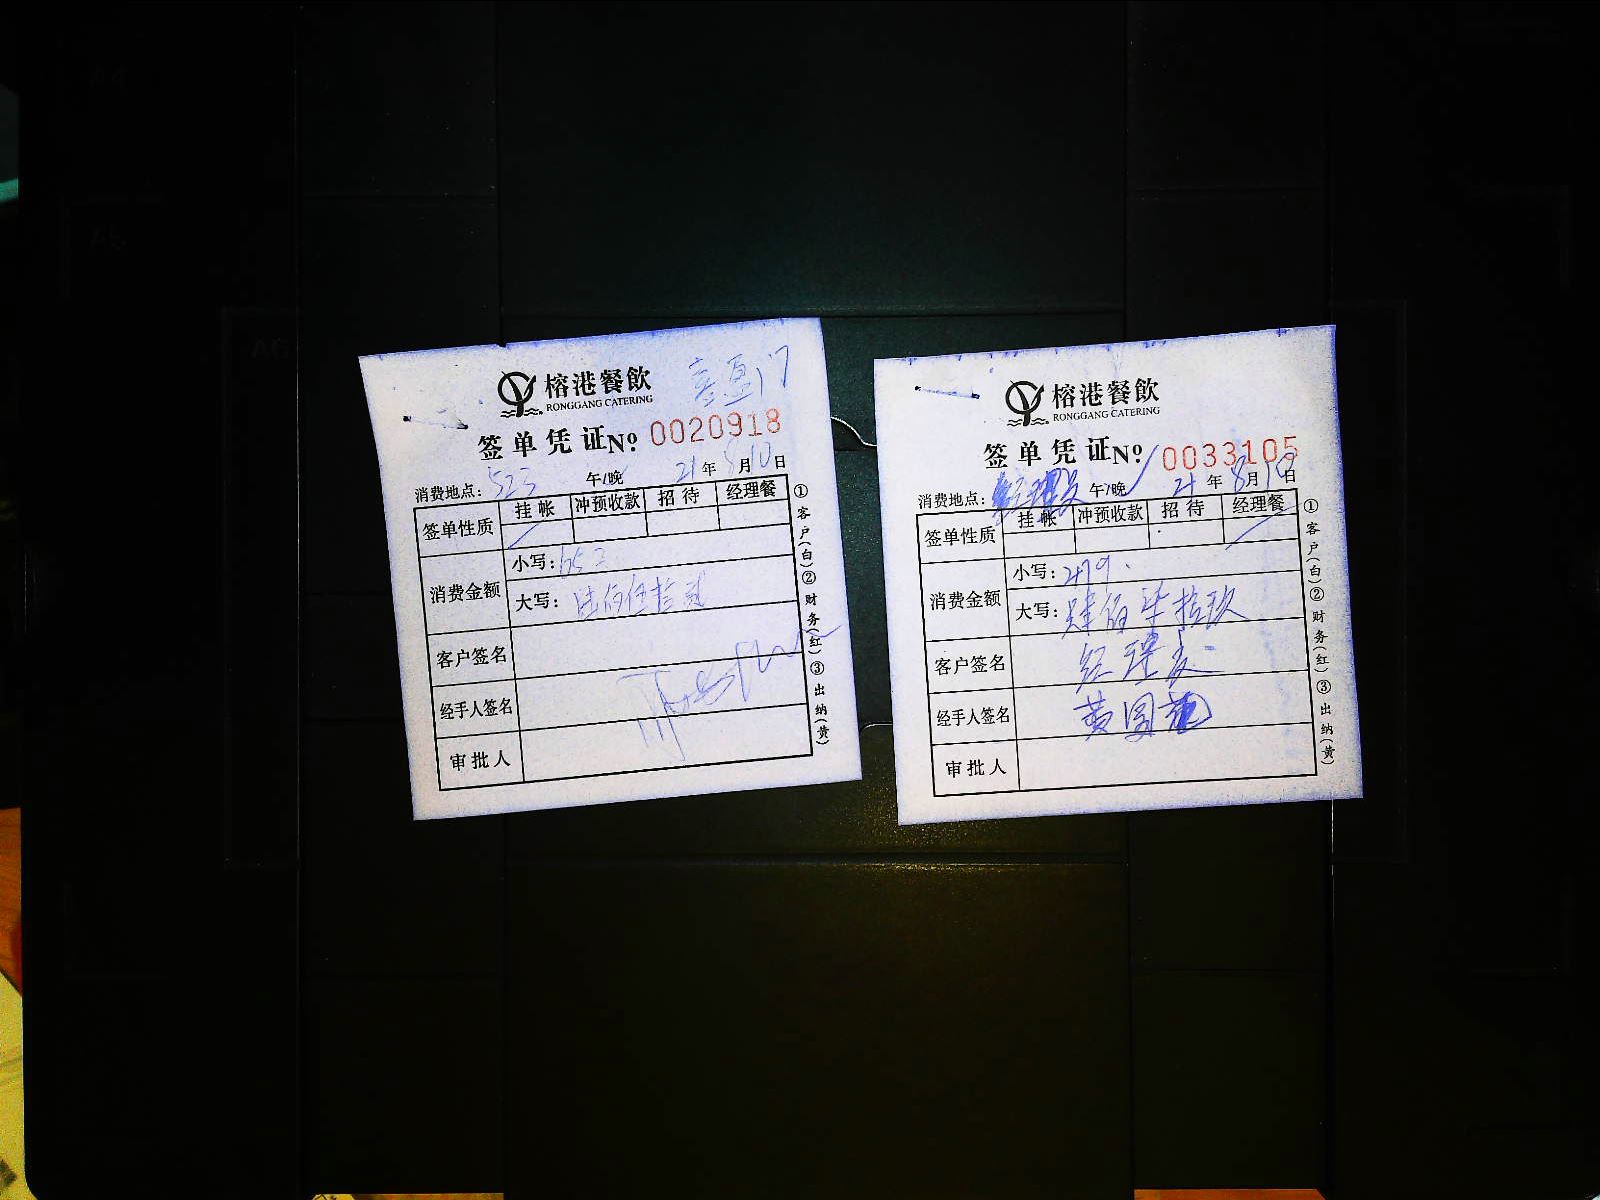 榕港餐飲
RONGGANG CATERING
喜盈门
签单凭证№ 0020918
消费地点: 523 午/晚 21年8月10日
签单性质 挂帐 冲预收款 招待 经理餐
消费金额 小写: 652
大写: 陆佰伍拾贰
客户签名
经手人签名
审批人
①客户(白)②财务(红)③出纳(黄)
榕港餐飲
RONGGANG CATERING
签单凭证№ 0033105
消费地点: 午/晚 21年8月10日
签单性质 挂帐 冲预收款 招待 经理餐
消费金额 小写: 479.
大写: 肆佰柒拾玖
客户签名 经理
经手人签名 黄圆
审批人
①客户(白)②财务(红)③出纳(黄)
A4
A5
A6